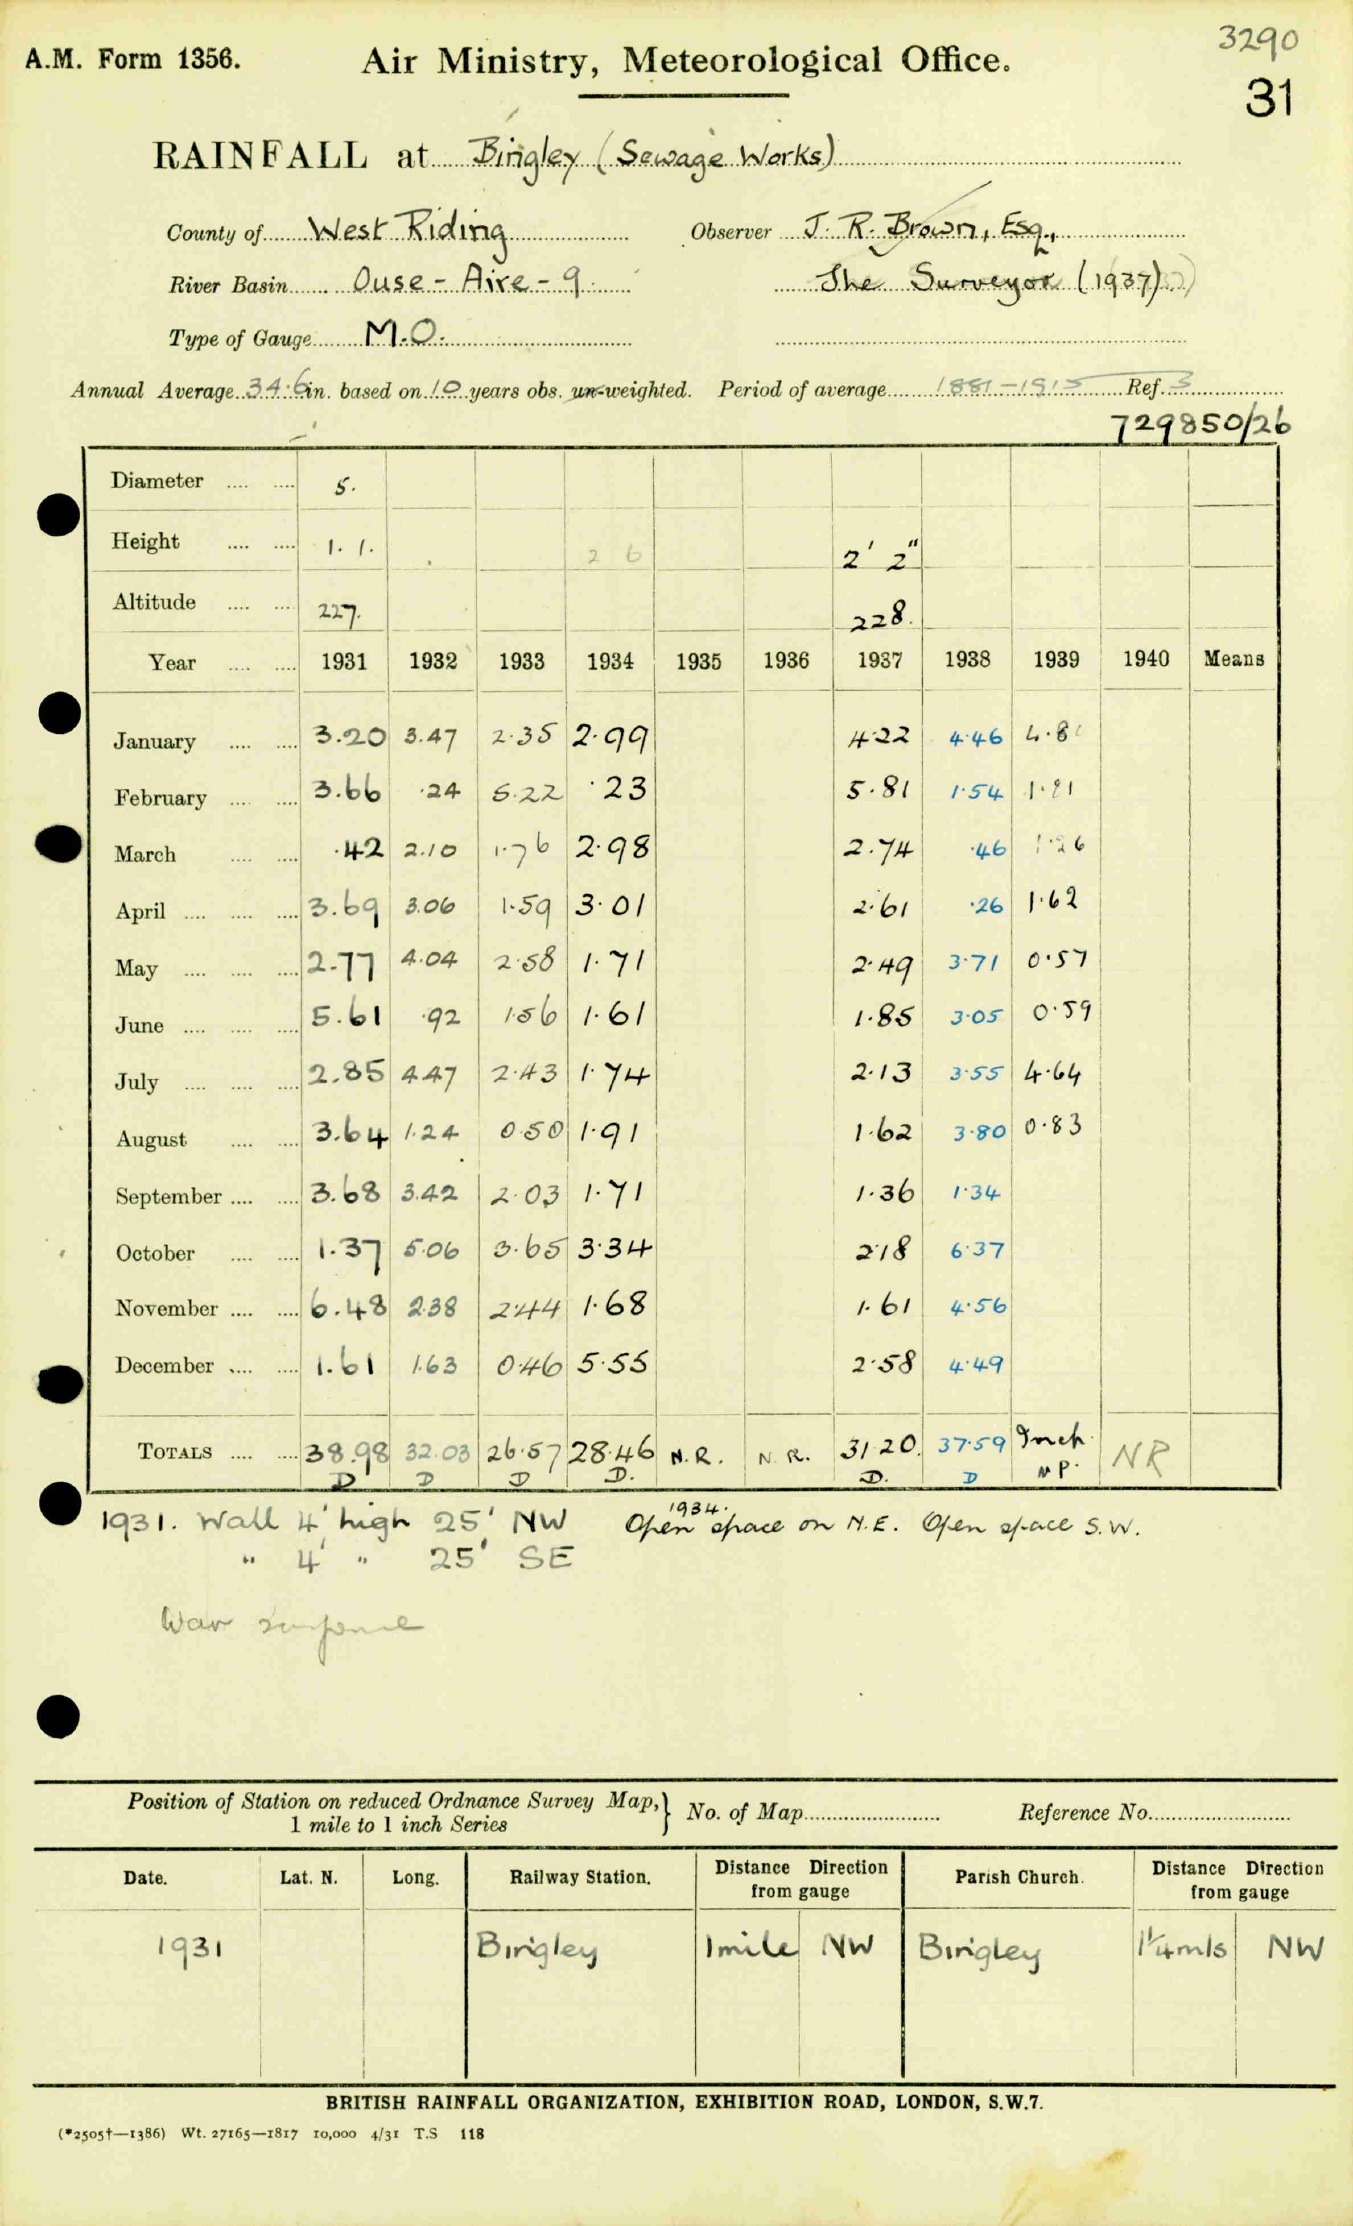 3290
A.M. Form 1356. Air Ministry, Meteorological Office.
31
RAINFALL at Bingley (Sewage Works)
County of West Riding Observer J. R. Brown, Esq.,
River Basin Ouse - Aire - 9 The Surveyor (1937)
Type of Gauge M.O.
Annual Average 34.6 in. based on 10 years obs. un-weighted. Period of average 1881-1915 Ref. 3
729850/26
Diameter 5.
Height 1. 1. 2 6 2' 2"
Altitude 227. 228.
Year 1931 1932 1933 1934 1935 1936 1937 1938 1939 1940 Means
January 3.20 3.47 2.35 2.99 4.22 4.46 4.8
February 3.66 .24 5.22 .23 5.81 1.54
March .42 2.10 1.76 2.98 2.74 .46 1.26
April 3.69 3.06 1.59 3.01 2.61 .26 1.62
May 2.77 4.04 2.58 1.71 2.49 3.71 0.57
June 5.61 .92 1.56 1.61 1.85 3.05 0.59
July 2.85 4.47 2.43 1.74 2.13 3.55 4.64
August 3.64 1.24 0.50 1.91 1.62 3.80 0.83
September 3.68 3.42 2.03 1.71 1.36 1.34
October 1.37 5.06 3.65 3.34 2.18 6.37
November 6.48 2.38 2.44 1.68 1.61 4.56
December 1.61 1.63 0.46 5.55 2.58 4.49
TOTALS 38.98 32.03 26.57 28.46 N.R. N.R. 31.20. 37.59 NR
D D D D. D. D
1931. Wall 4' high 25' NW
" 4' " 25' SE
1934.
Open space on N.E. Open space S.W.
War
Position of Station on reduced Ordnance Survey Map, } No. of Map Reference No.
1 mile to 1 inch Series
Date. Lat. N. Long. Railway Station. Distance Direction from gauge Parish Church. Distance Direction from gauge
1931 Bingley 1 mile NW Bingley 1 1/4 mls NW
BRITISH RAINFALL ORGANIZATION, EXHIBITION ROAD, LONDON, S.W.7.
(*2505†—1386) Wt. 27165—1817 10,000 4/31 T.S 118